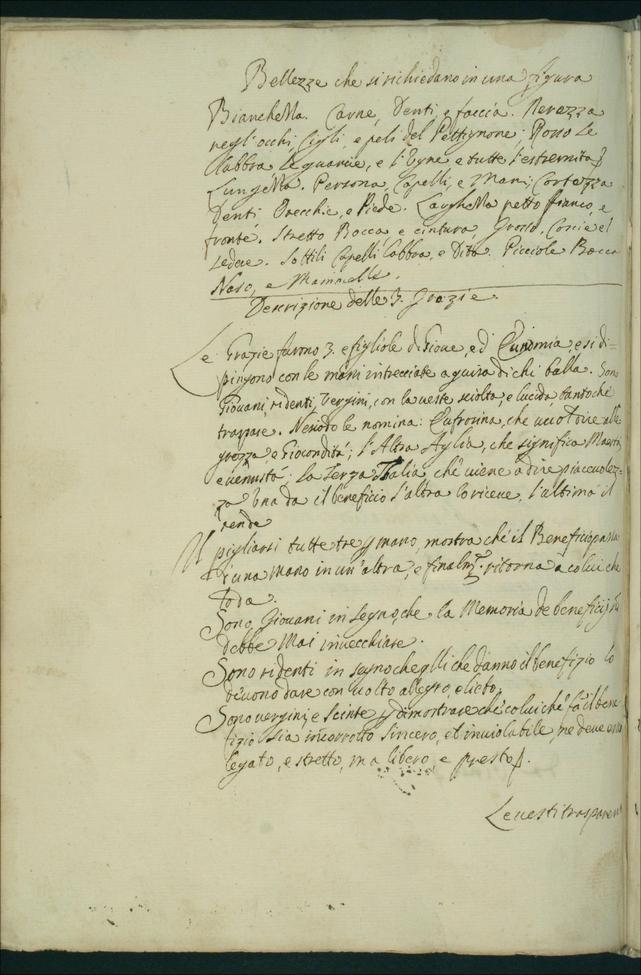 Bellezze che si richiedano in una figura
Bianchezza. Carne, Denti, e faccia. Nerezza
negl'occhi, Cigli, e peli del Pettignone; Rosso le
labbra le guancie, e l'Ugne e tutte l'estremità
Lunghezza. Persona, Capelli, e Mani; Cortezza
Denti Orecchie, e Piede. Larghezza petto franco, e
fronte. Stretto Bocca e cintura, Grosso, Coscie el
sedere. Sottili Capelli labbra, e Dita. Picciole Bocca
Naso, e Mammelle.
Descrizione delle 3. Grazie.
Le Grazie furono 3. e figliole di Gioue, ed Eunomia, e si di-
pingono con le mani intrecciate a guisa di chi balla. Sono
Giouani, ridenti, Vergini, con la ueste sciolta, e lucida, tantoche
traspare. Hesiodo le nomina: Eufrosina, che uuol dire alle
grezza e Giocondità; l'Altra Aglia, che significa Maestà
e uenustà; la Terza Thalia, che uiene a dire piaceuolez-
za Una da il beneficio l'altra lo riceue, l'ultima il
rende
Il pigliarsi tutte tre p mano, mostra che il Beneficio passa
d'una mano in un'altra, e finalmte. ritorna a colui che
lo da.
Sono, Giouani in segno, che la Memoria de beneficij
debbe Mai inuecchiare.
Sono ridenti in segno che qlli che danno il benefizio lo
deuono dare con uolto allegro, e lieto.
Sono uergini, e scinte p dimostrare che colui che fa il bene-
fizio sia incorrotto sincero, et inuiolabile, ne deue esser
legato, e stretto, ma libero, e presto.
Le uesti trasparen